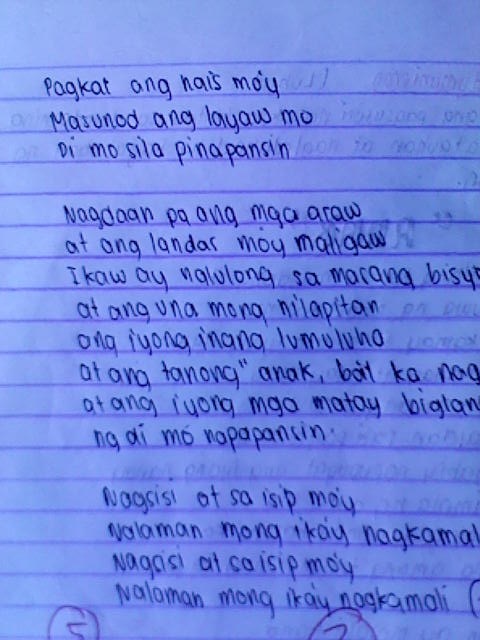 Pagkat ang nais mo'y
Masunod ang layaw mo
Di mo sila pinapansin
Nagdaan pa ang mga araw
at ang landas mo'y maligaw
Ikaw ay nalulong sa masang bisyo
at ang una mong nilapitan
ang iyong inang lumuluha
at ang tanong" anak, ba't ka nag
at ang iyong mga matay biglan
ng di mo napapansin.
Nagsisi at sa isip mo'y
Nalaman mong ika'y nagkamal
Nagsisi at sa isip mo'y
Nalaman mong ika'y nagkamali (
5